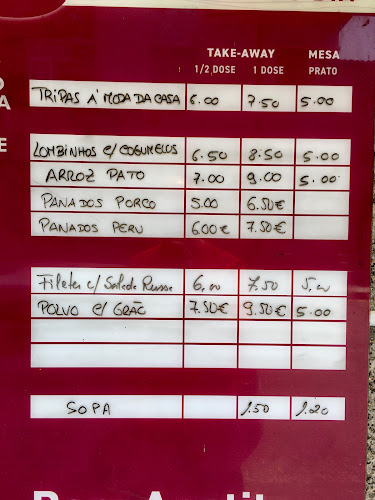 TAKE-AWAY MESA
1/2 DOSE 1 DOSE PRATO
TRIPAS À MODA DA CASA 6.00 7.50 5.00
LOMBINHOS C/ COGUMELOS 6.50 8.50 5.00
ARROZ PATO 7.00 9.00 5.00
PANADOS PORCO 5.00 6.50€
PANADOS PERU 6.00€ 7.50€
Filetes c/ Salada Russa 6,00 7.50 5,00
POLVO C/ GRÃO 7.50€ 9.50€ 5.00
SOPA 1.50 1.20